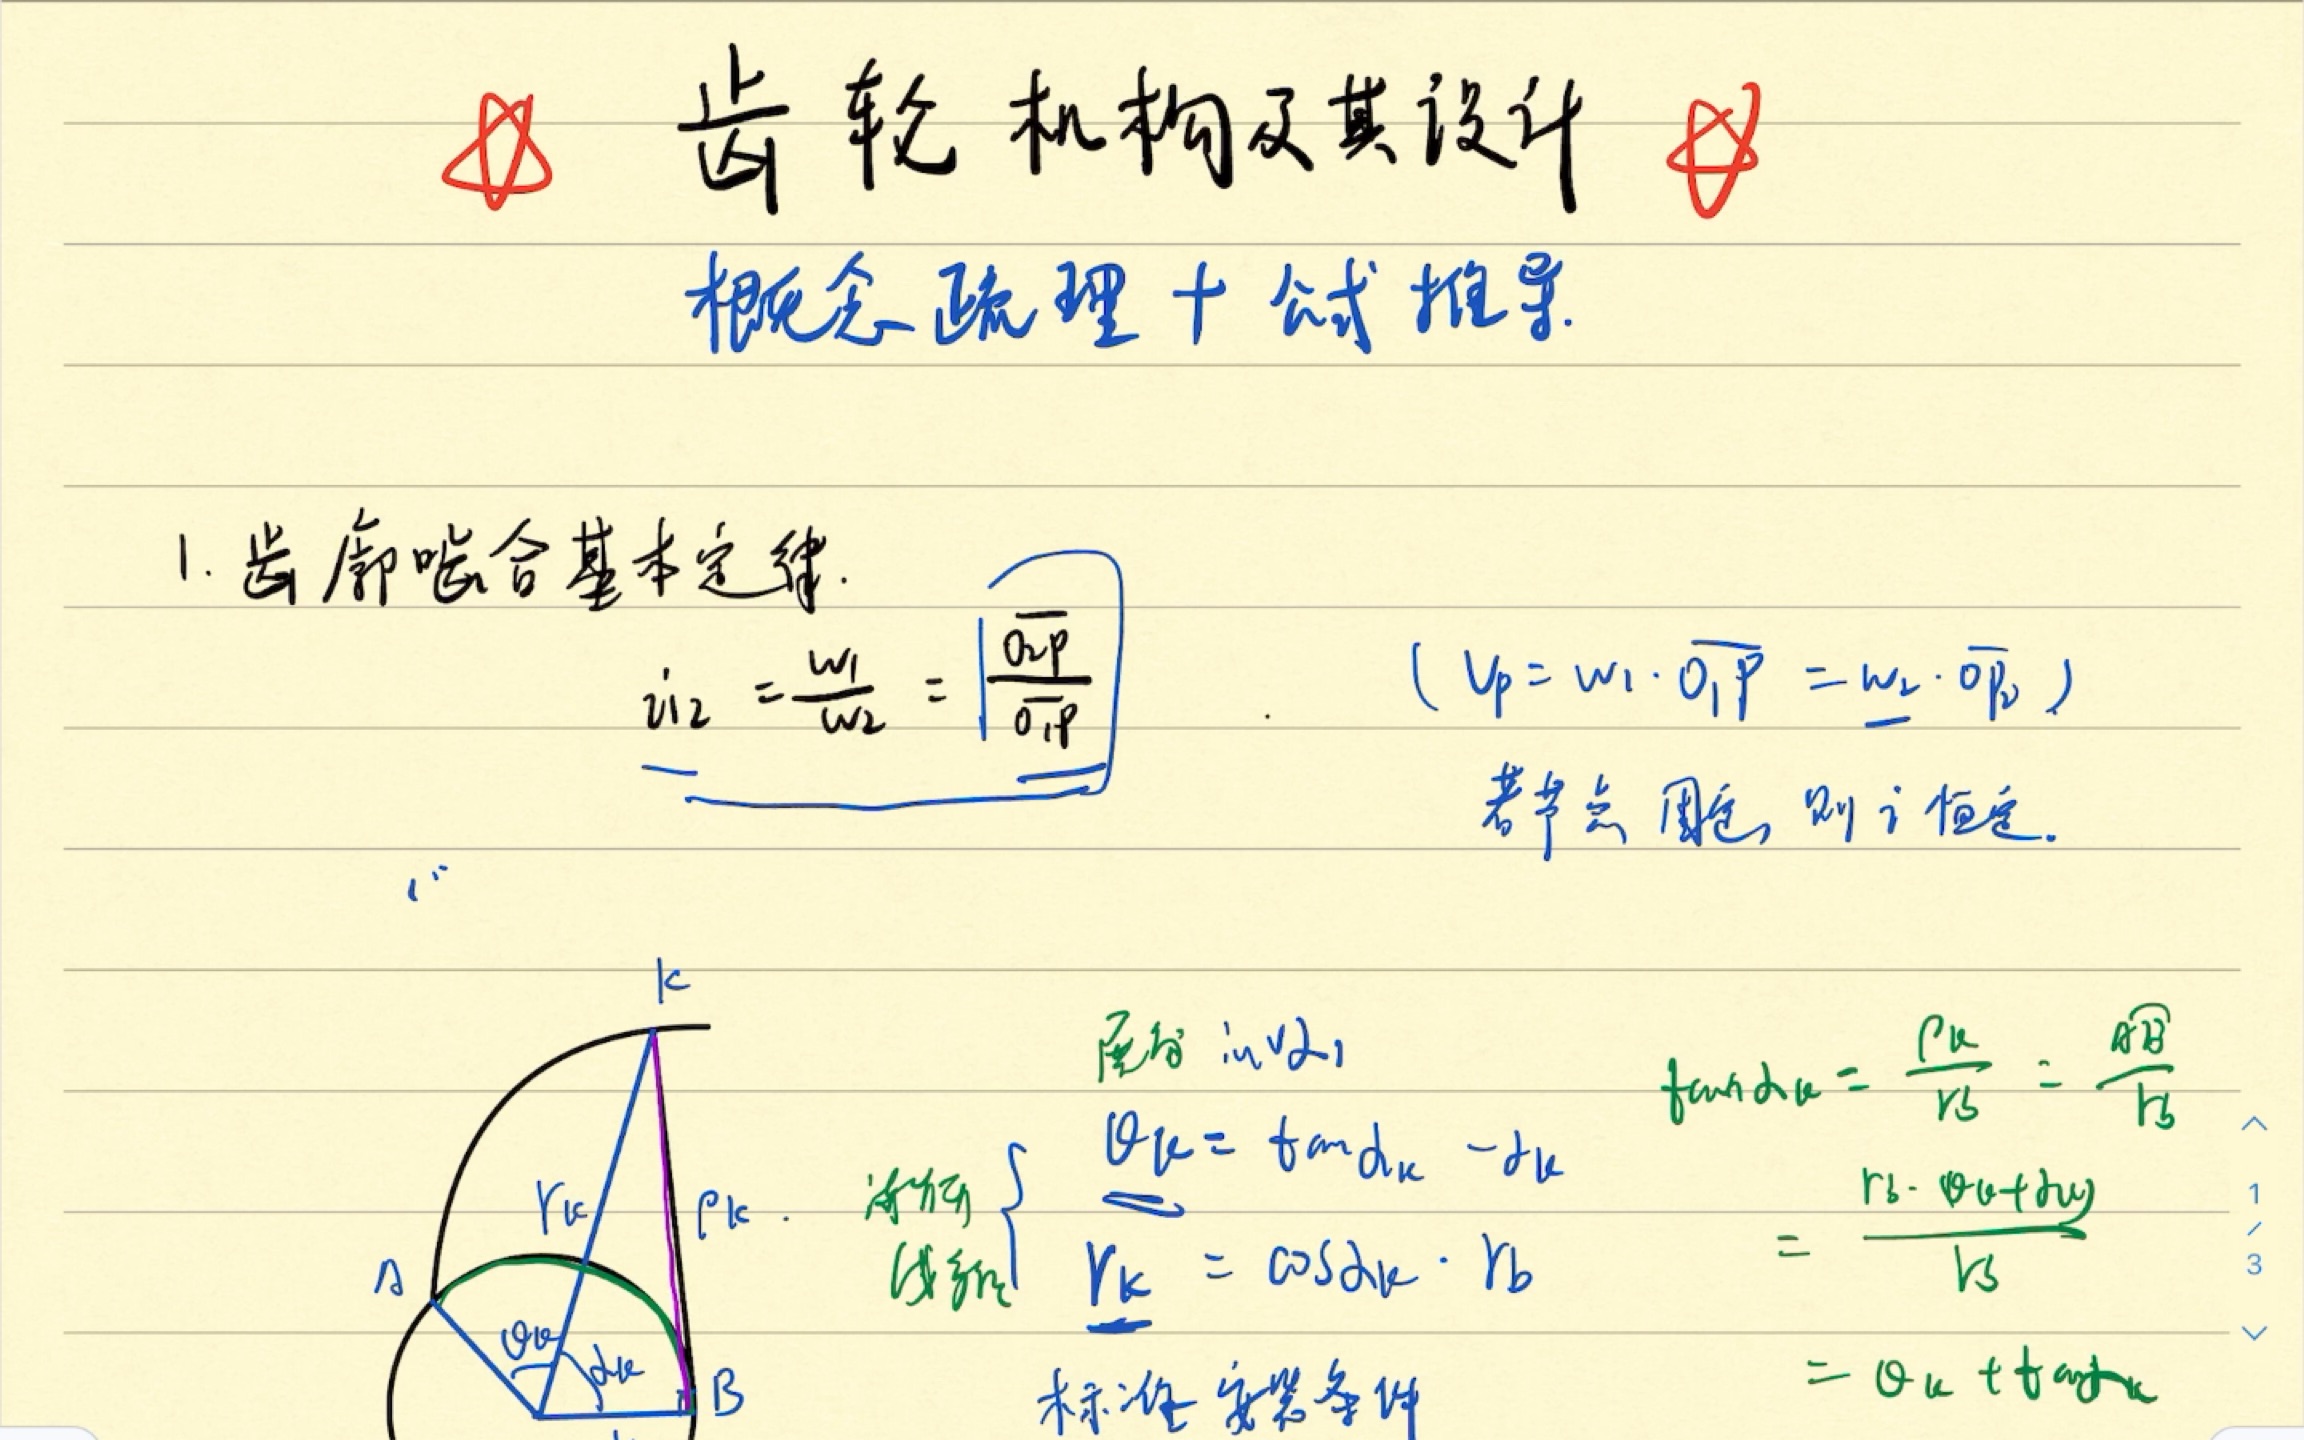 齿轮机构及其设计
概念疏理+公式推导.
1. 齿廓啮合基本定律.
i12 = w1/w2 = O2P/O1P
(Vp = w1·O1P = w2·OP2)
若节点固定, 则 i 恒定.
K
rk
ρk.
A
θk
αk
B
展角 invα1
渐开线方程
θk = tanαk - αk
rk = cosαk · rb
标准安装条件
tanαk = ρk/rb = AB/rb
= rb·(θk+αk)/rb
= θk + tanαk
1/3